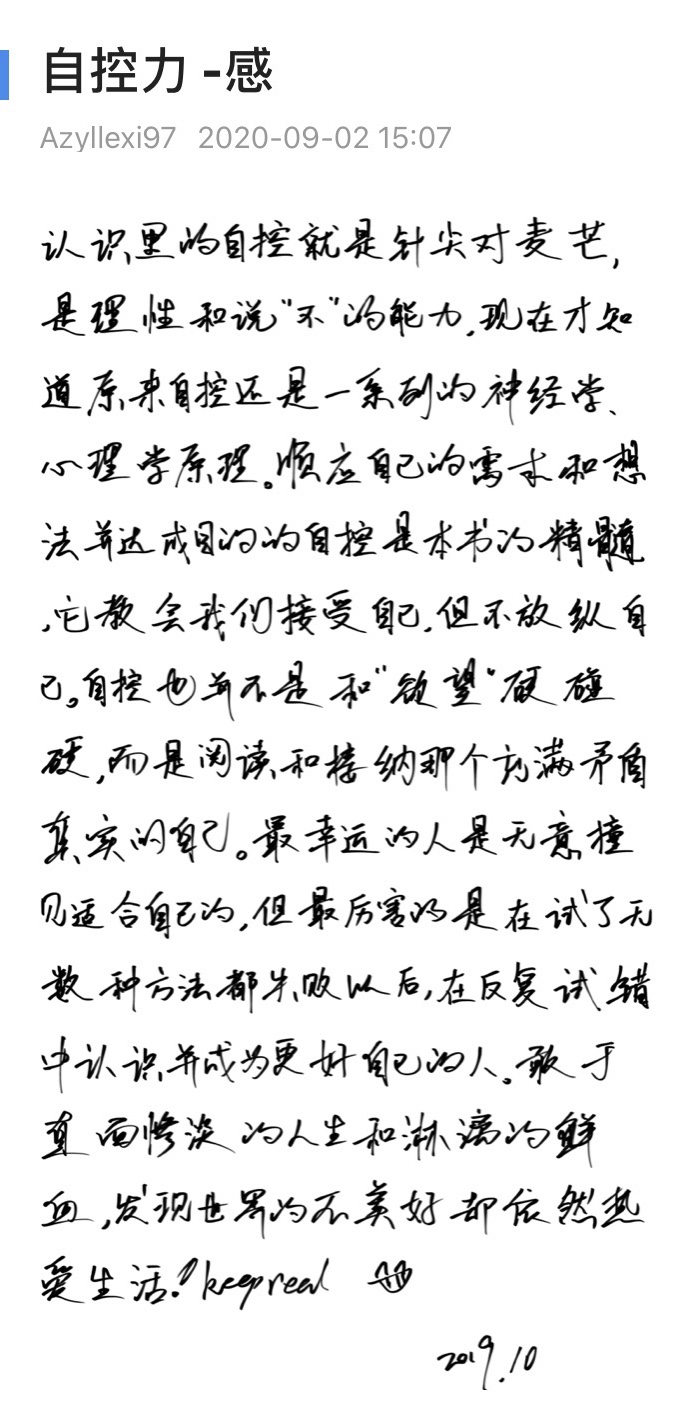 自控力 -感
Azyllexi97 2020-09-02 15:07
认识里的自控就是针尖对麦芒,
是理性和说"不"的能力,现在才知
道原来自控还是一系列的神经学、
心理学原理。顺应自己的需求和想
法并达成目的的自控是本书的精髓
,它教会我们接受自己,但不放纵自
己。自控也并不是和"欲望"硬碰
硬,而是阅读和接纳那个充满矛盾
真实的自己。最幸运的人是无意撞
见适合自己的,但最厉害的是在试了无
数种方法都失败以后,在反复试错
中认识并成为更好自己的人。敢于
直面惨淡的人生和淋漓的鲜
血,发现世界的不美好却依然热
爱生活!keep real
2019.10